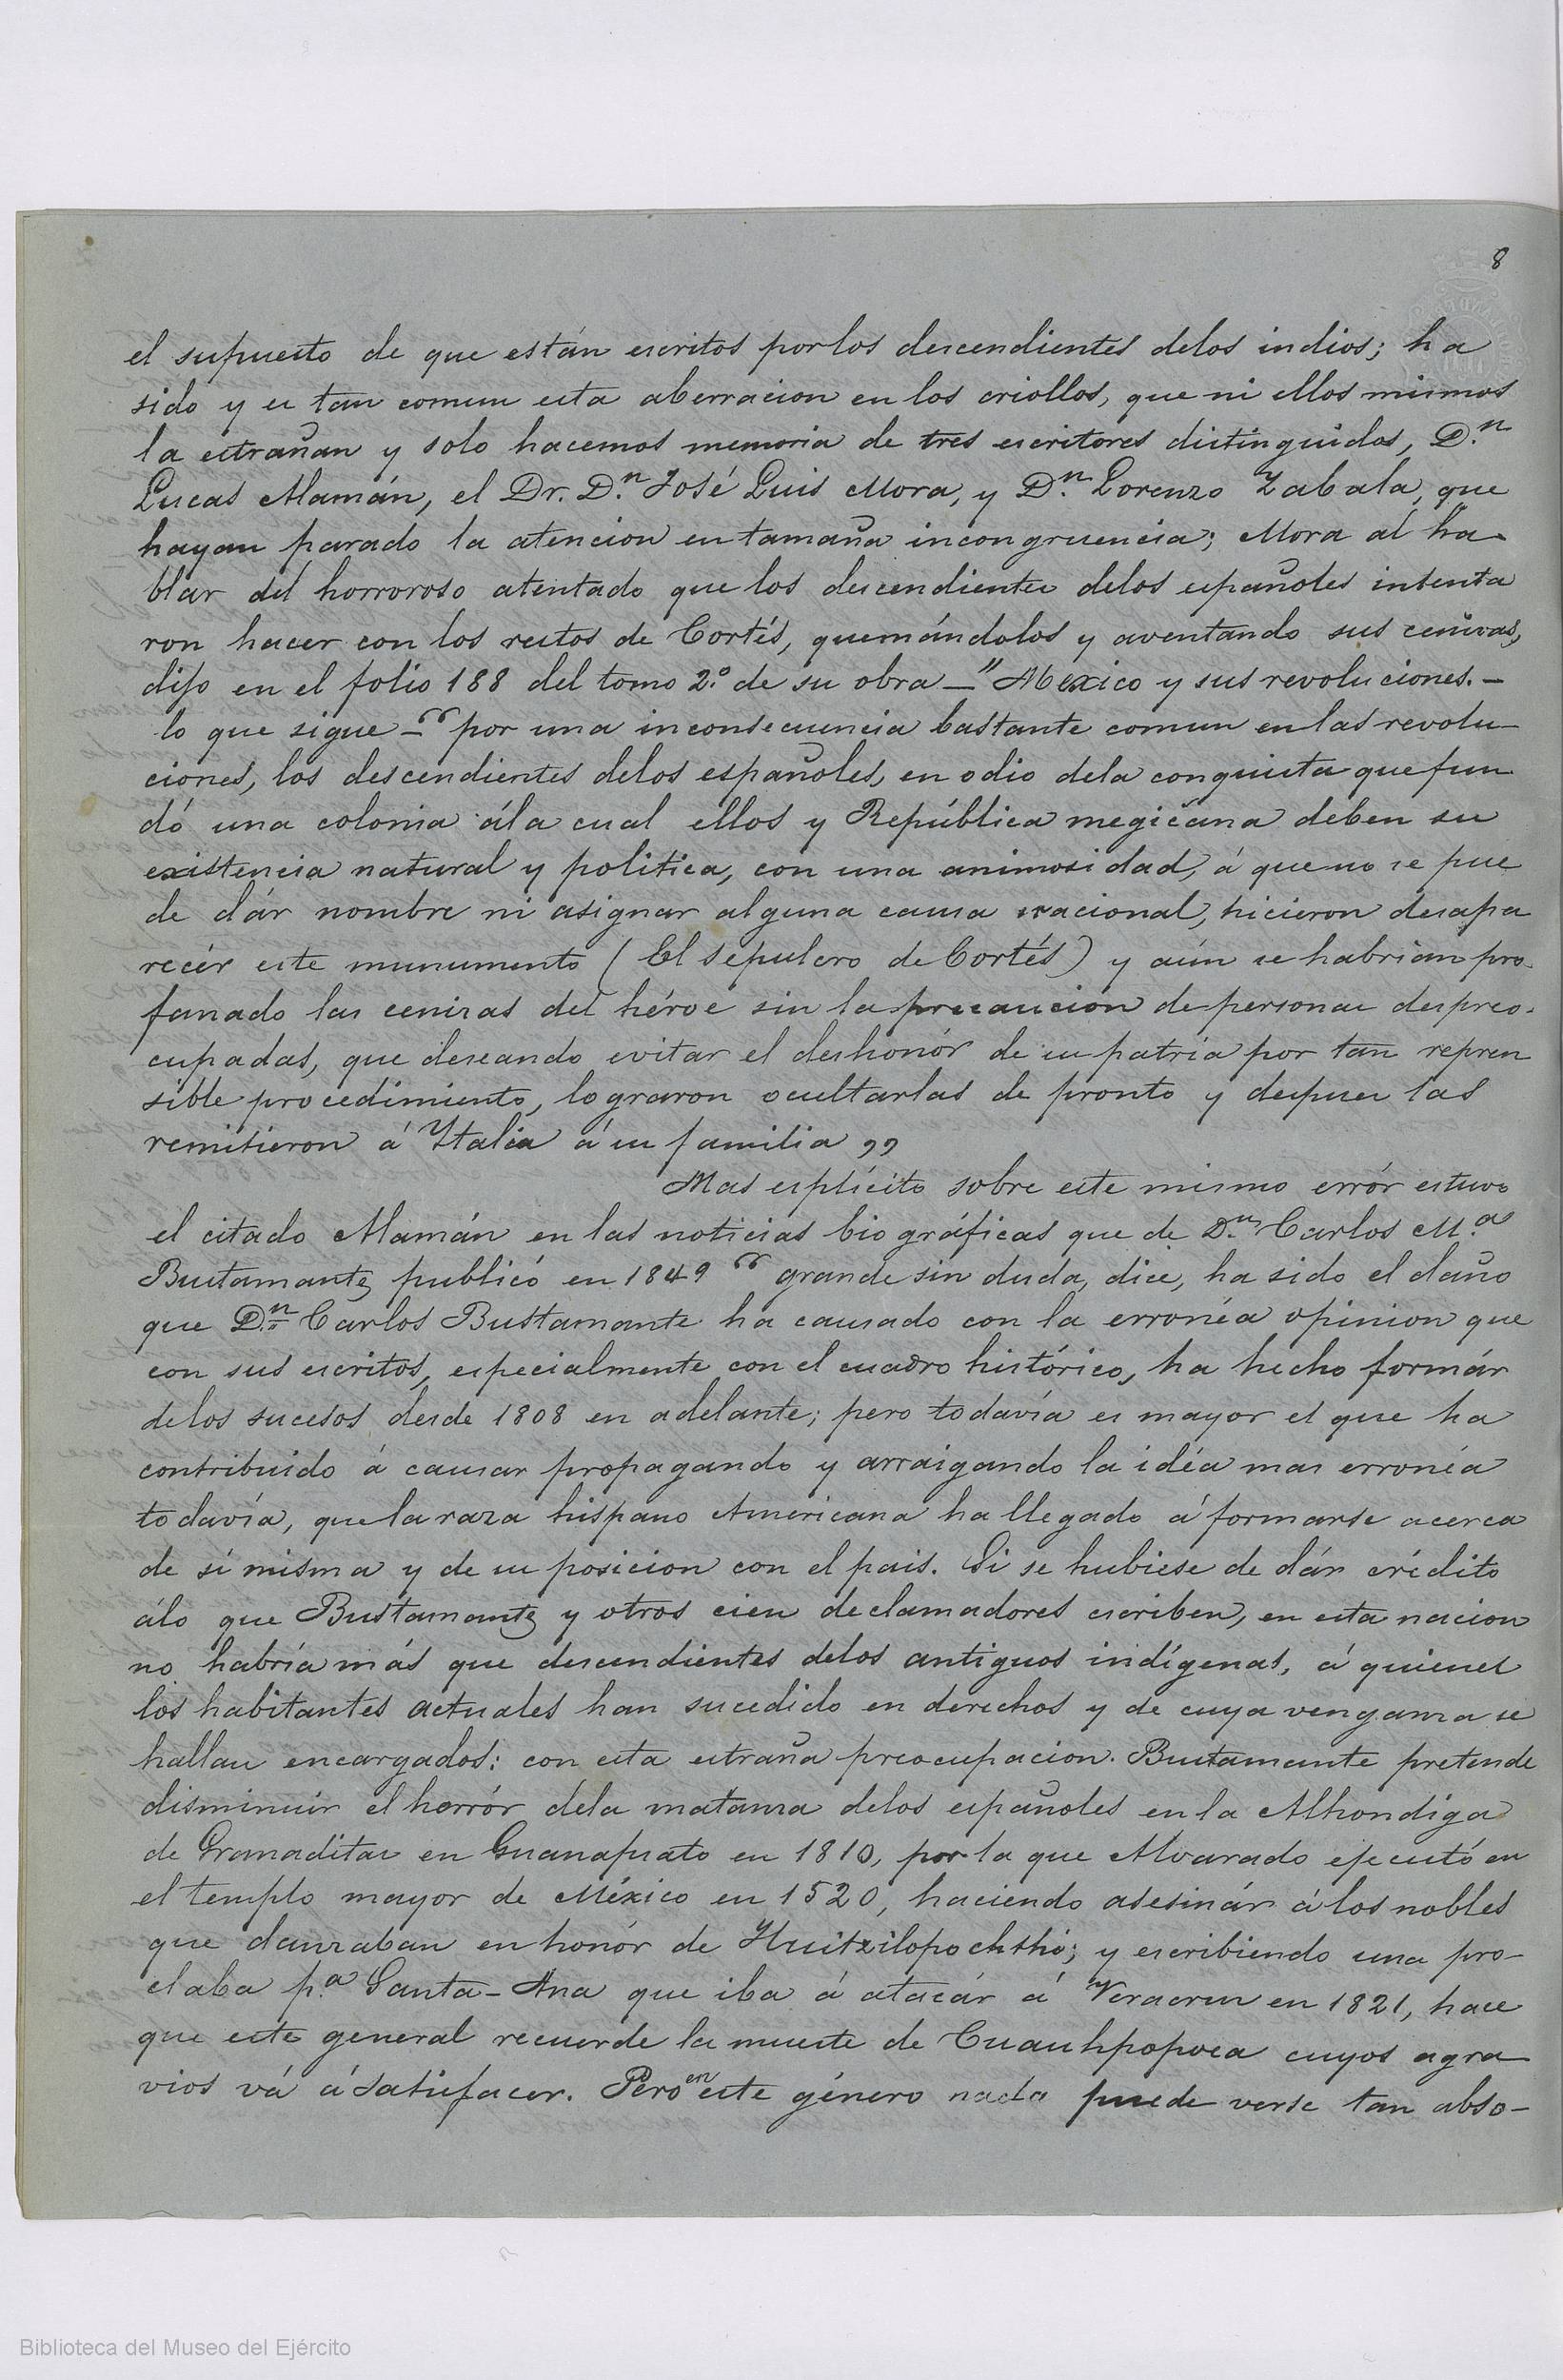 8
el supuesto de que están escritos por los descendientes delos indios; ha
sido y es tan comun esta aberracion en los criollos, que ni ellos mismos
la estrañan y solo hacemos memoria de tres escritores distinguidos, D.n
Lucas Alamán, el Dr. D.n José Luis Mora, y D.n Lorenzo Zabala, que
hayan parado la atencion en tamaña incongruencia; Mora al ha-
blar del horroroso atentado que los descendientes delos españoles intenta
ron hacer con los restos de Cortés, quemándolos y aventando sus cenizas,
dijo en el folio 188 del tomo 2.º de su obra — "Mexico y sus revoluciones. —
lo que sigue — “ por una inconsecuencia bastante comun en las revolu-
ciones, los descendientes delos españoles, en odio dela conquista que fun
dó una colonia ála cual ellos y República megicana deben su
existencia natural y politica, con una animosidad, á que no se pue
de dár nombre ni asignar alguna causa racional, hicieron desapa
recér este munumento (El sepulcro de Cortés) y aún se habrian pro-
fanado las cenizas del héroe sin la precaucion de personas despreo-
cupadas, que deseando evitar el deshonór de su patria por tan repren
sible procedimiento, lograron ocultarlas de pronto y despues las
remitieron á Ytalia á su familia ,,
Mas esplícito sobre este mismo errór estuvo
el citado Alamán en las noticias biográficas que de D.n Carlos M.a
Bustamante publicó en 1849 “ grande sin duda, dice, ha sido el daño
que D.n Carlos Bustamante ha causado con la erronéa opinion que
con sus escritos, especialmente con el cuadro histórico, ha hecho formár
delos sucesos desde 1808 en adelante; pero todavía es mayor el que ha
contribuido á causar propagando y arraigando la idéa mas erronéa
todavía, que la raza hispano Americana ha llegado á formarse acerca
de sí misma y de su posicion con el pais. Si se hubiese de dár crédito
álo que Bustamante y otros cien declamadores escriben, en esta nacion
no habría más que descendientes delos antiguos indígenas, á quienes
los habitantes actuales han sucedido en derechos y de cuya venganza se
hallan encargados: con esta estraña preocupacion. Bustamante pretende
disminuir el horrór dela matanza delos españoles en la Alhondiga
de Granaditas en Guanajuato en 1810, por la que Alvarado ejecutó en
el templo mayor de México en 1520, haciendo asesinár á los nobles
que danzaban en honór de Huitzilopochthi; y escribiendo una pro-
claba p.a Santa-Ana que iba á atacár á Veracruz en 1821, hace
que este general recuerde la muerte de Cuauhpopoca cuyos agra
vios vá á satisfacer. Pero en este género nada puede verse tan abso-
Biblioteca del Museo del Ejército